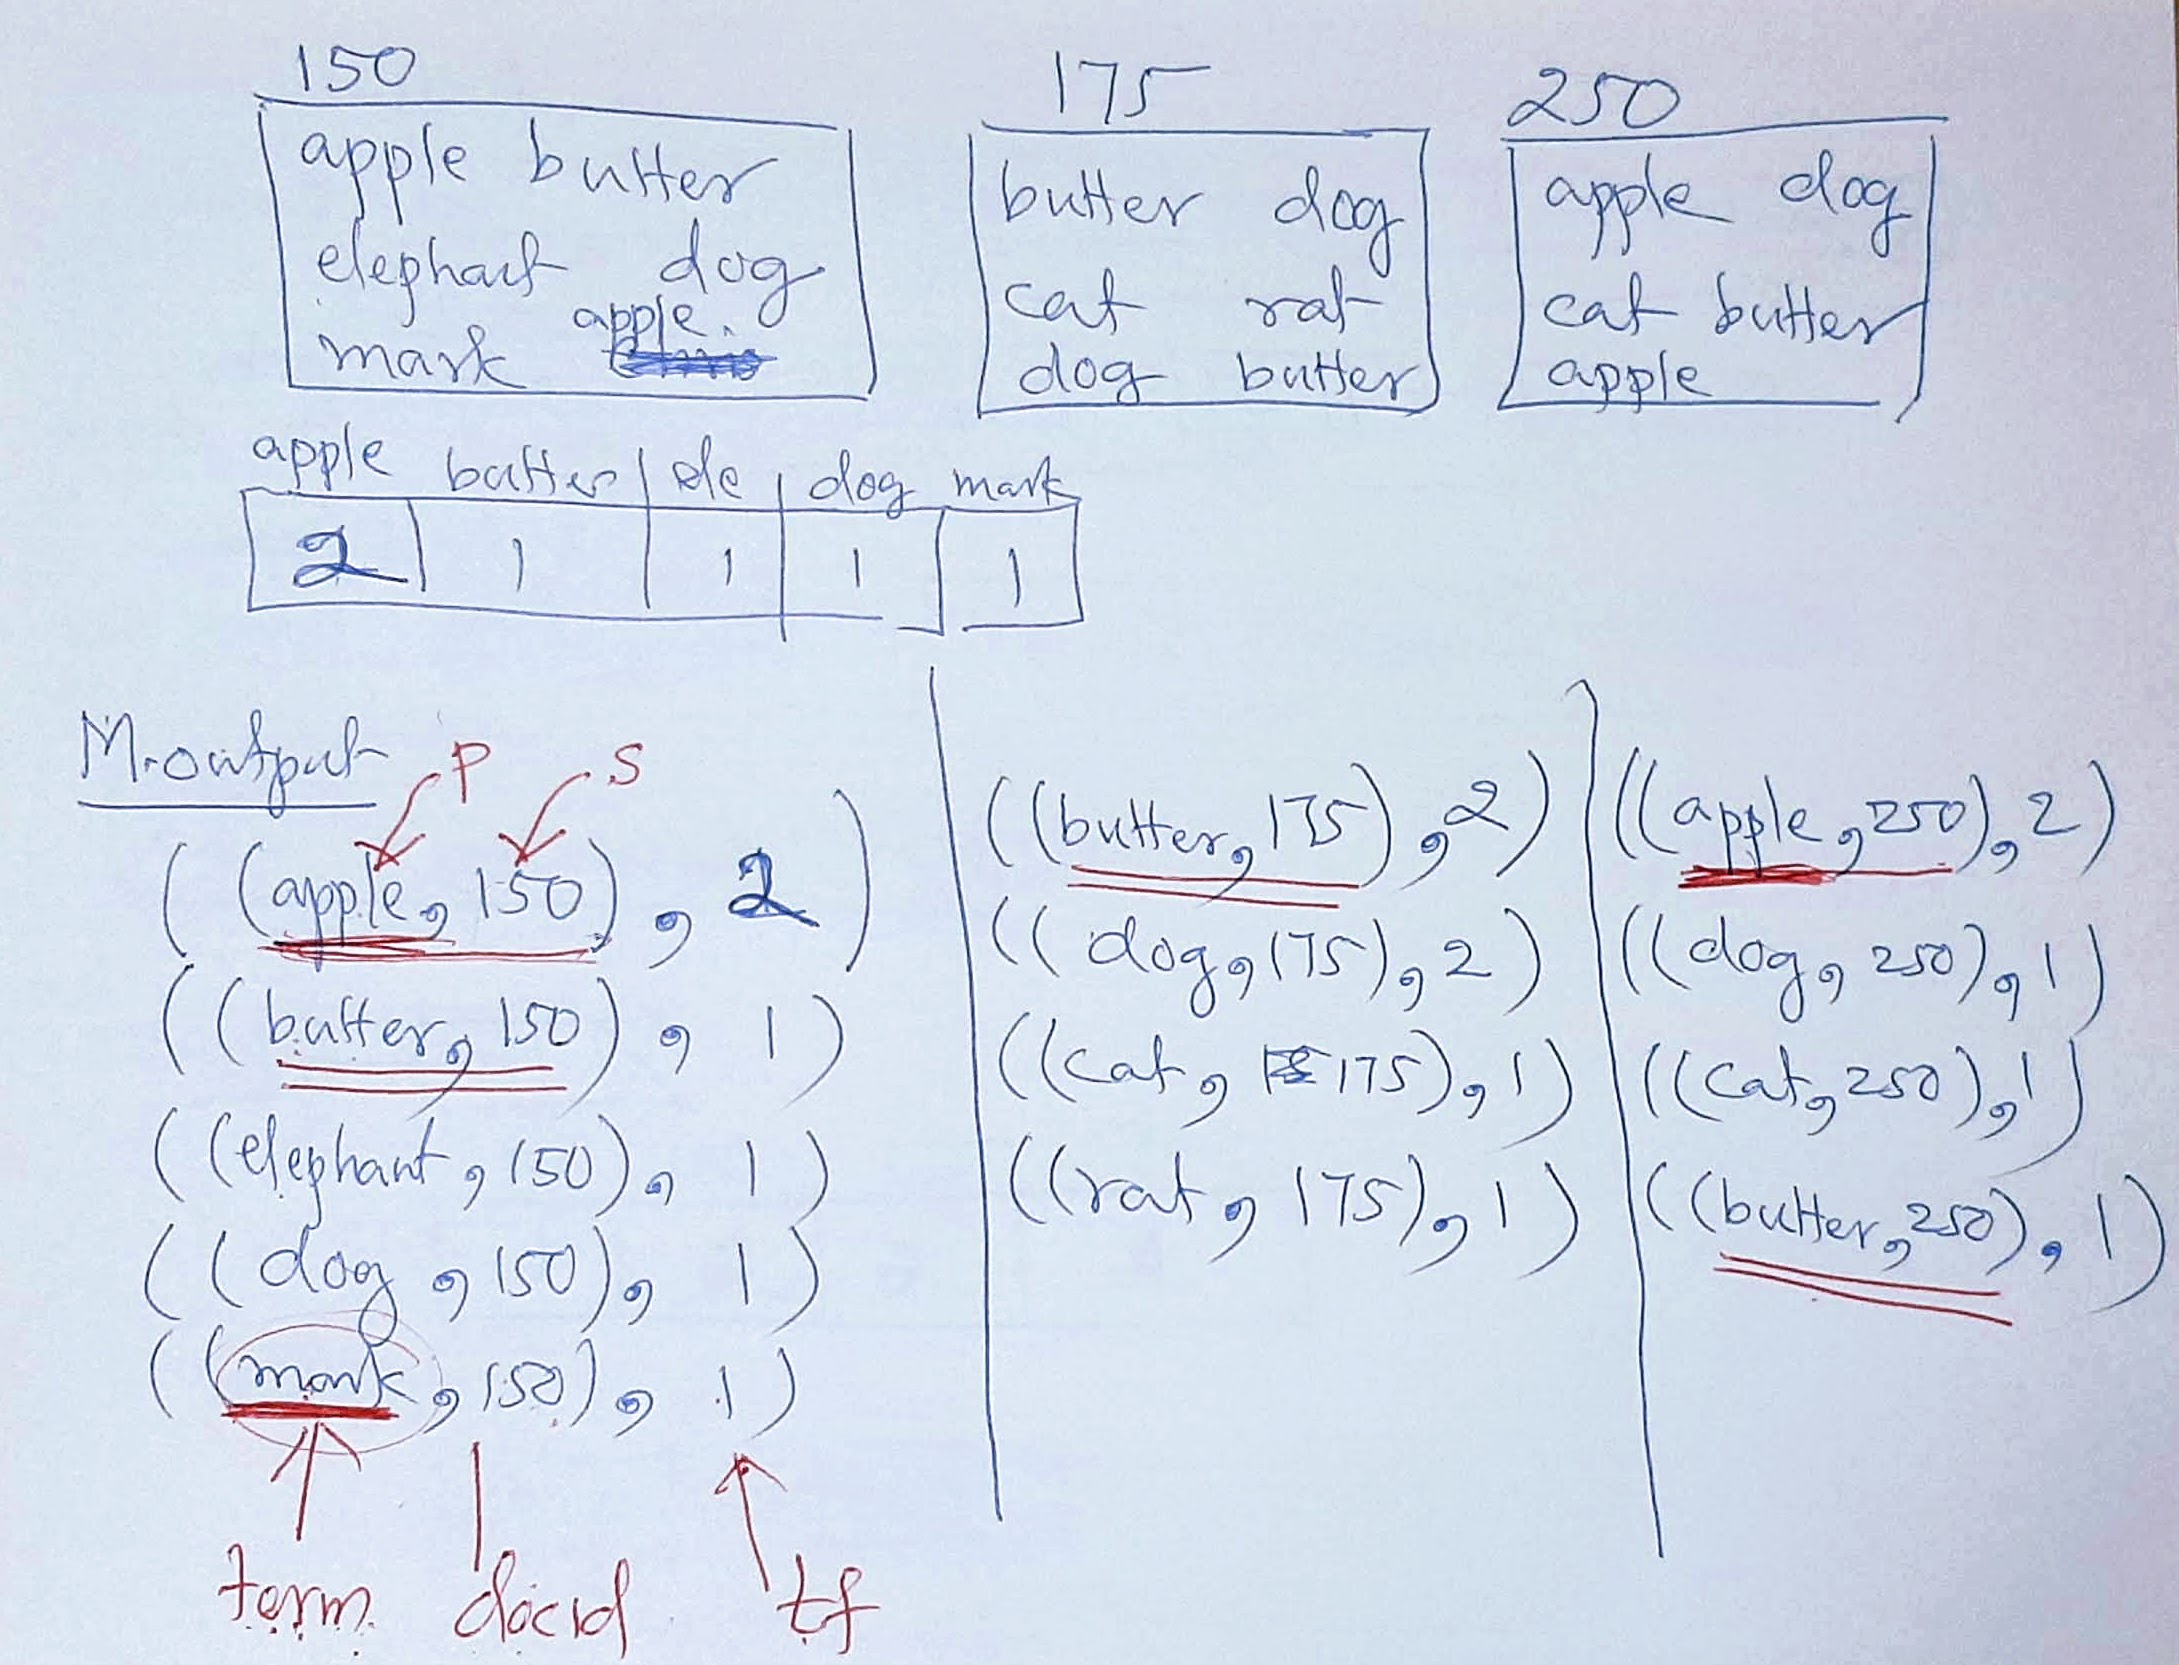 150
apple butter
elephant dog
apple
mark
175
butter dog
cat rat
dog butter
250
apple dog
cat butter
apple
apple butter ele dog mark
2 1 1 1 1
M.output
P S
((apple, 150), 2)
((butter, 150), 1)
((elephant, 150), 1)
((dog, 150), 1)
((mark, 150), 1)
term docid tf
((butter, 175), 2)
((dog, 175), 2)
((cat, 175), 1)
((rat, 175), 1)
((apple, 250), 2)
((dog, 250), 1)
((cat, 250), 1)
((butter, 250), 1)